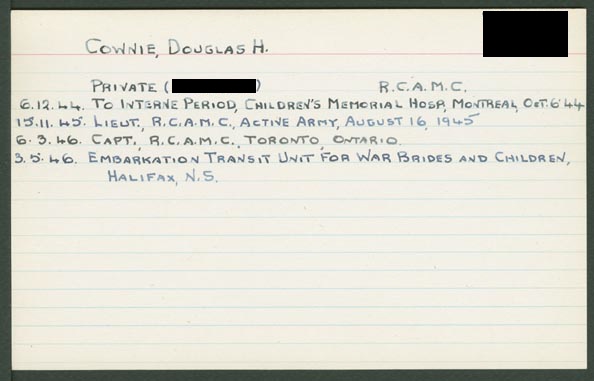 COWNIE, DOUGLAS H.
PRIVATE ( ) R.C.A.M.C.
6.12.44. TO INTERNE PERIOD, CHILDREN'S MEMORIAL HOSP, MONTREAL, OCT. 6·44
15.11.45. LIEUT., R.C.A.M.C., ACTIVE ARMY, AUGUST 16, 1945
6.3.46. CAPT., R.C.A.M.C., TORONTO, ONTARIO.
3.5.46. EMBARKATION TRANSIT UNIT FOR WAR BRIDES AND CHILDREN,
HALIFAX, N.S.